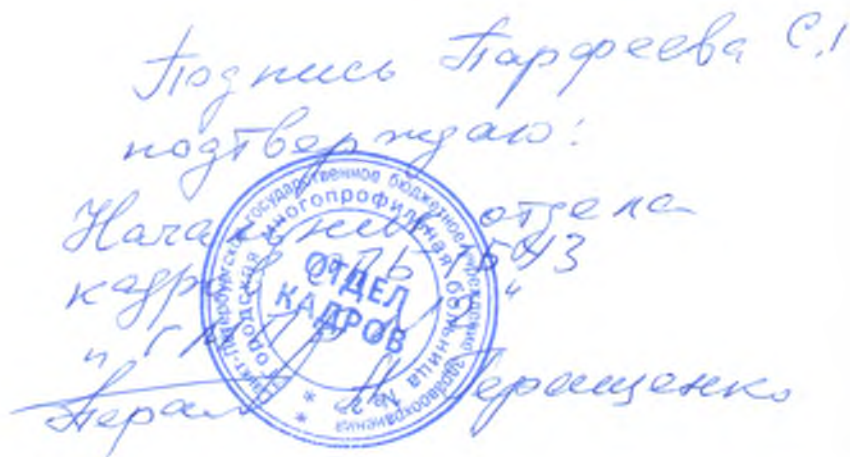 Подпись Парфеева С.
подтверждаю:
Начальник отдела
кадров СПб ГБУЗ
Геращенко
Санкт-Петербургское государственное бюджетное учреждение здравоохранения
Городская многопрофильная больница № 2
ОТДЕЛ
КАДРОВ